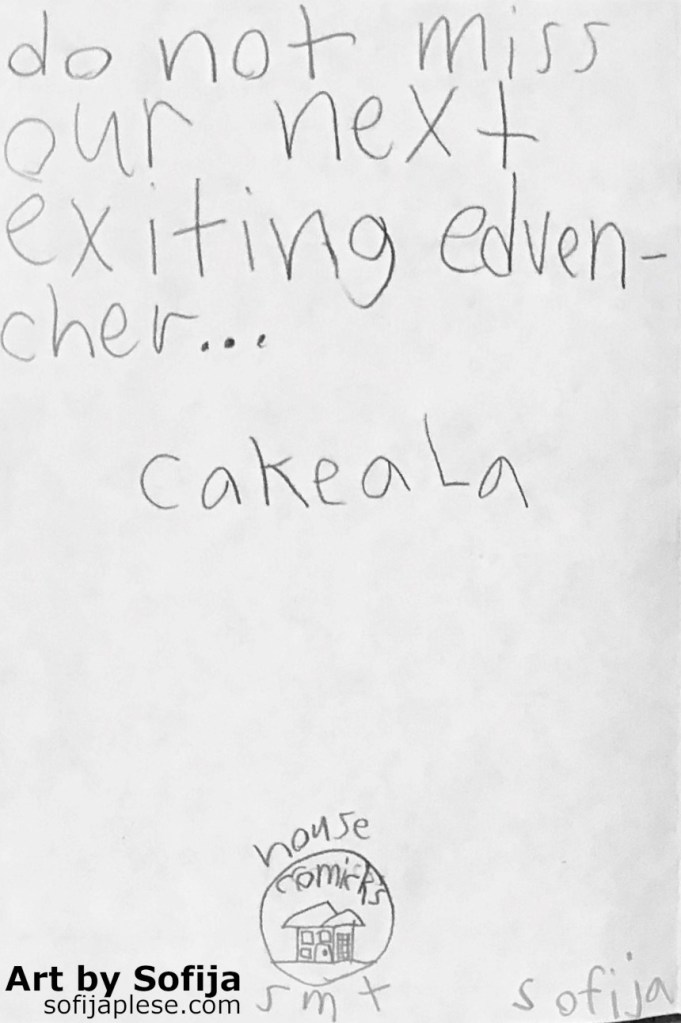 do not miss
our next
exiting edven-
cher...
cakeala
house
comicks
smt
sofija
Art by Sofija
sofijaplese.com